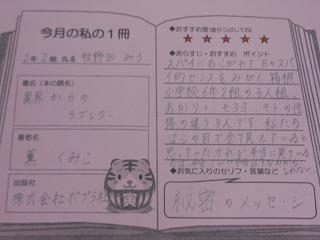 今月の私の1冊
2年2組 氏名 牧野田 みう
書名(本の題名)
異界からの
ラブレター
著者名
薫 くみこ
出版社
株式会社ポプラ社
寅
◆おすすめ度(塗りつぶしてね)
★ ★ ★ ★ ★
◆あらすじ・おすすめ ポイント
スパイにあこがれて日々スパイ
的センスをみがく、箱根
小学校6年2組の3人組。
あかり、モヨヨ、キトの性
格の違う3人です。私たち
はこの目で全て見えていると
思っていたけれど、本当に見ている
◆お気に入りのセリフ・言葉など
秘密のメッセージ